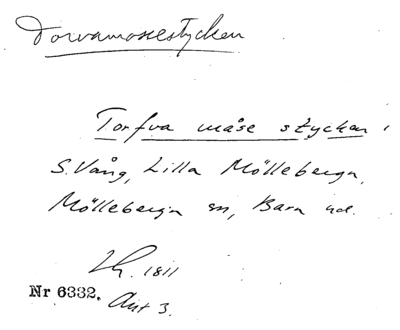 Torvamossestycken
Torfva måse stycken i
S. Vång, Lilla Mölleberga,
Mölleberga sn, Bara hd.
Lh. 1811
Nr 6332. Akt 3.